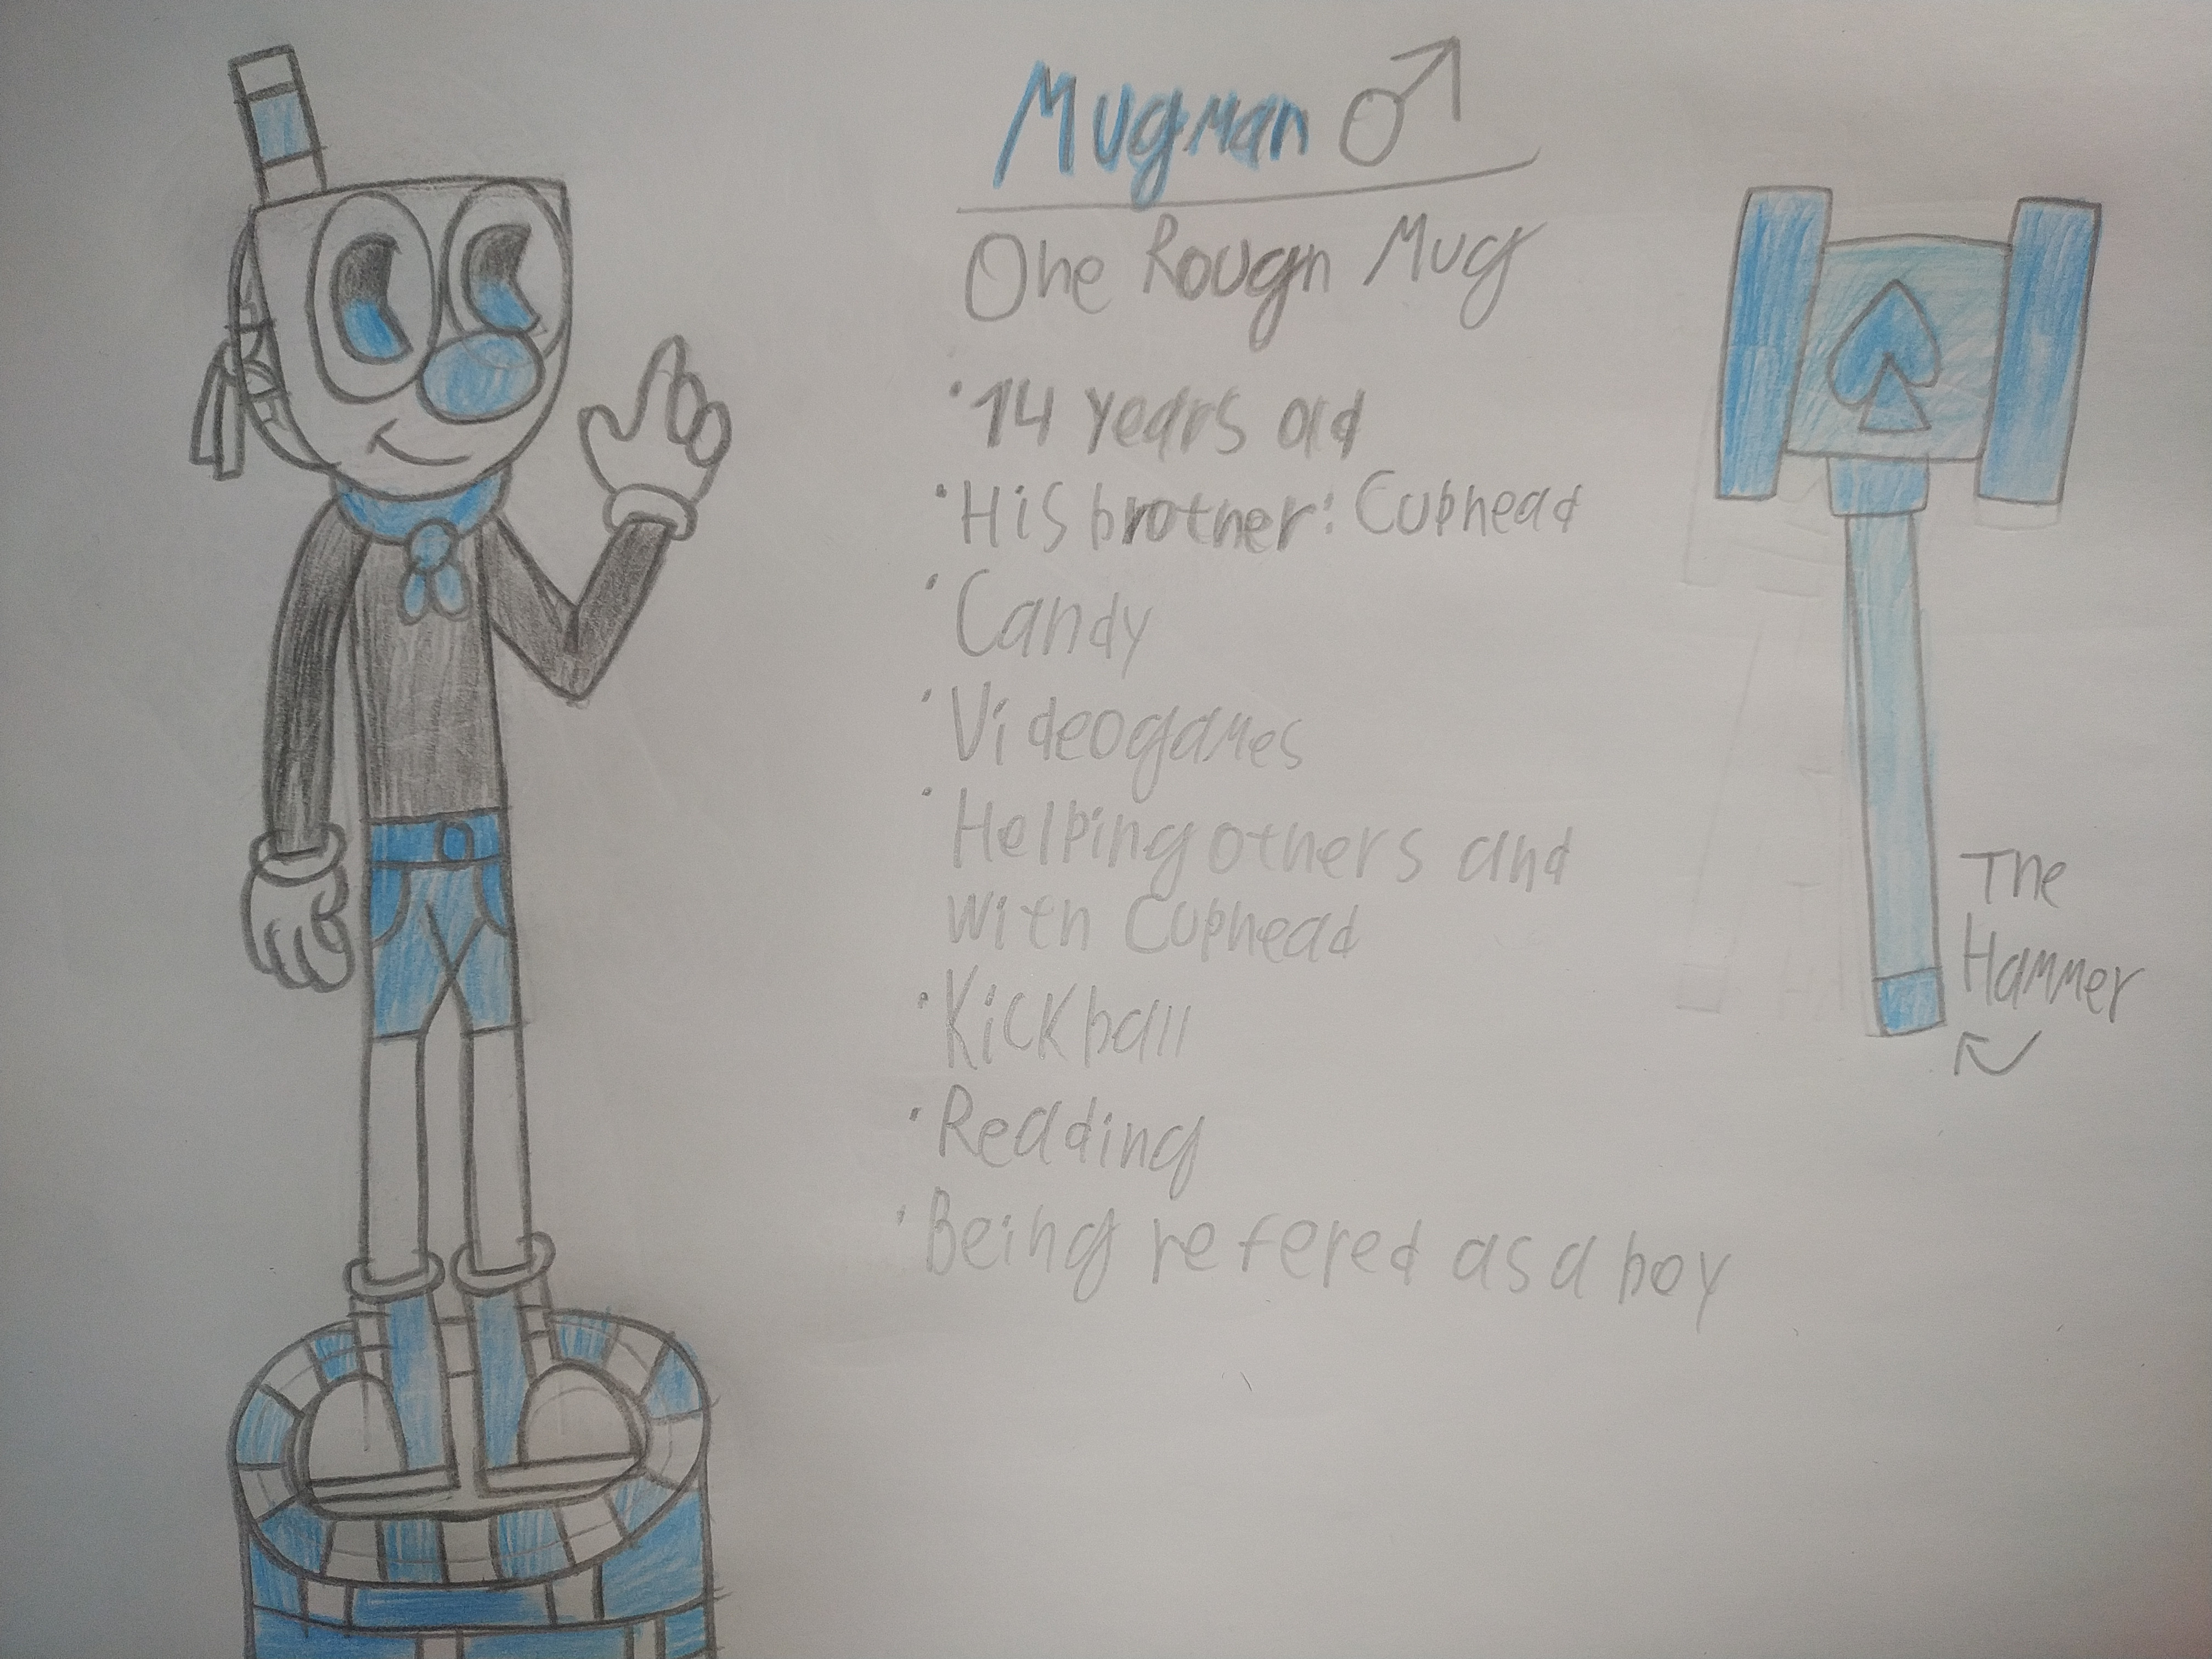 Mugman ♂
One Rough Mug
• 14 years old
• His brother: Cuphead
• Candy
• Videogames
• Helping others and
with Cuphead
• Kickball
• Reading
• Being refered as a boy
The
Hammer